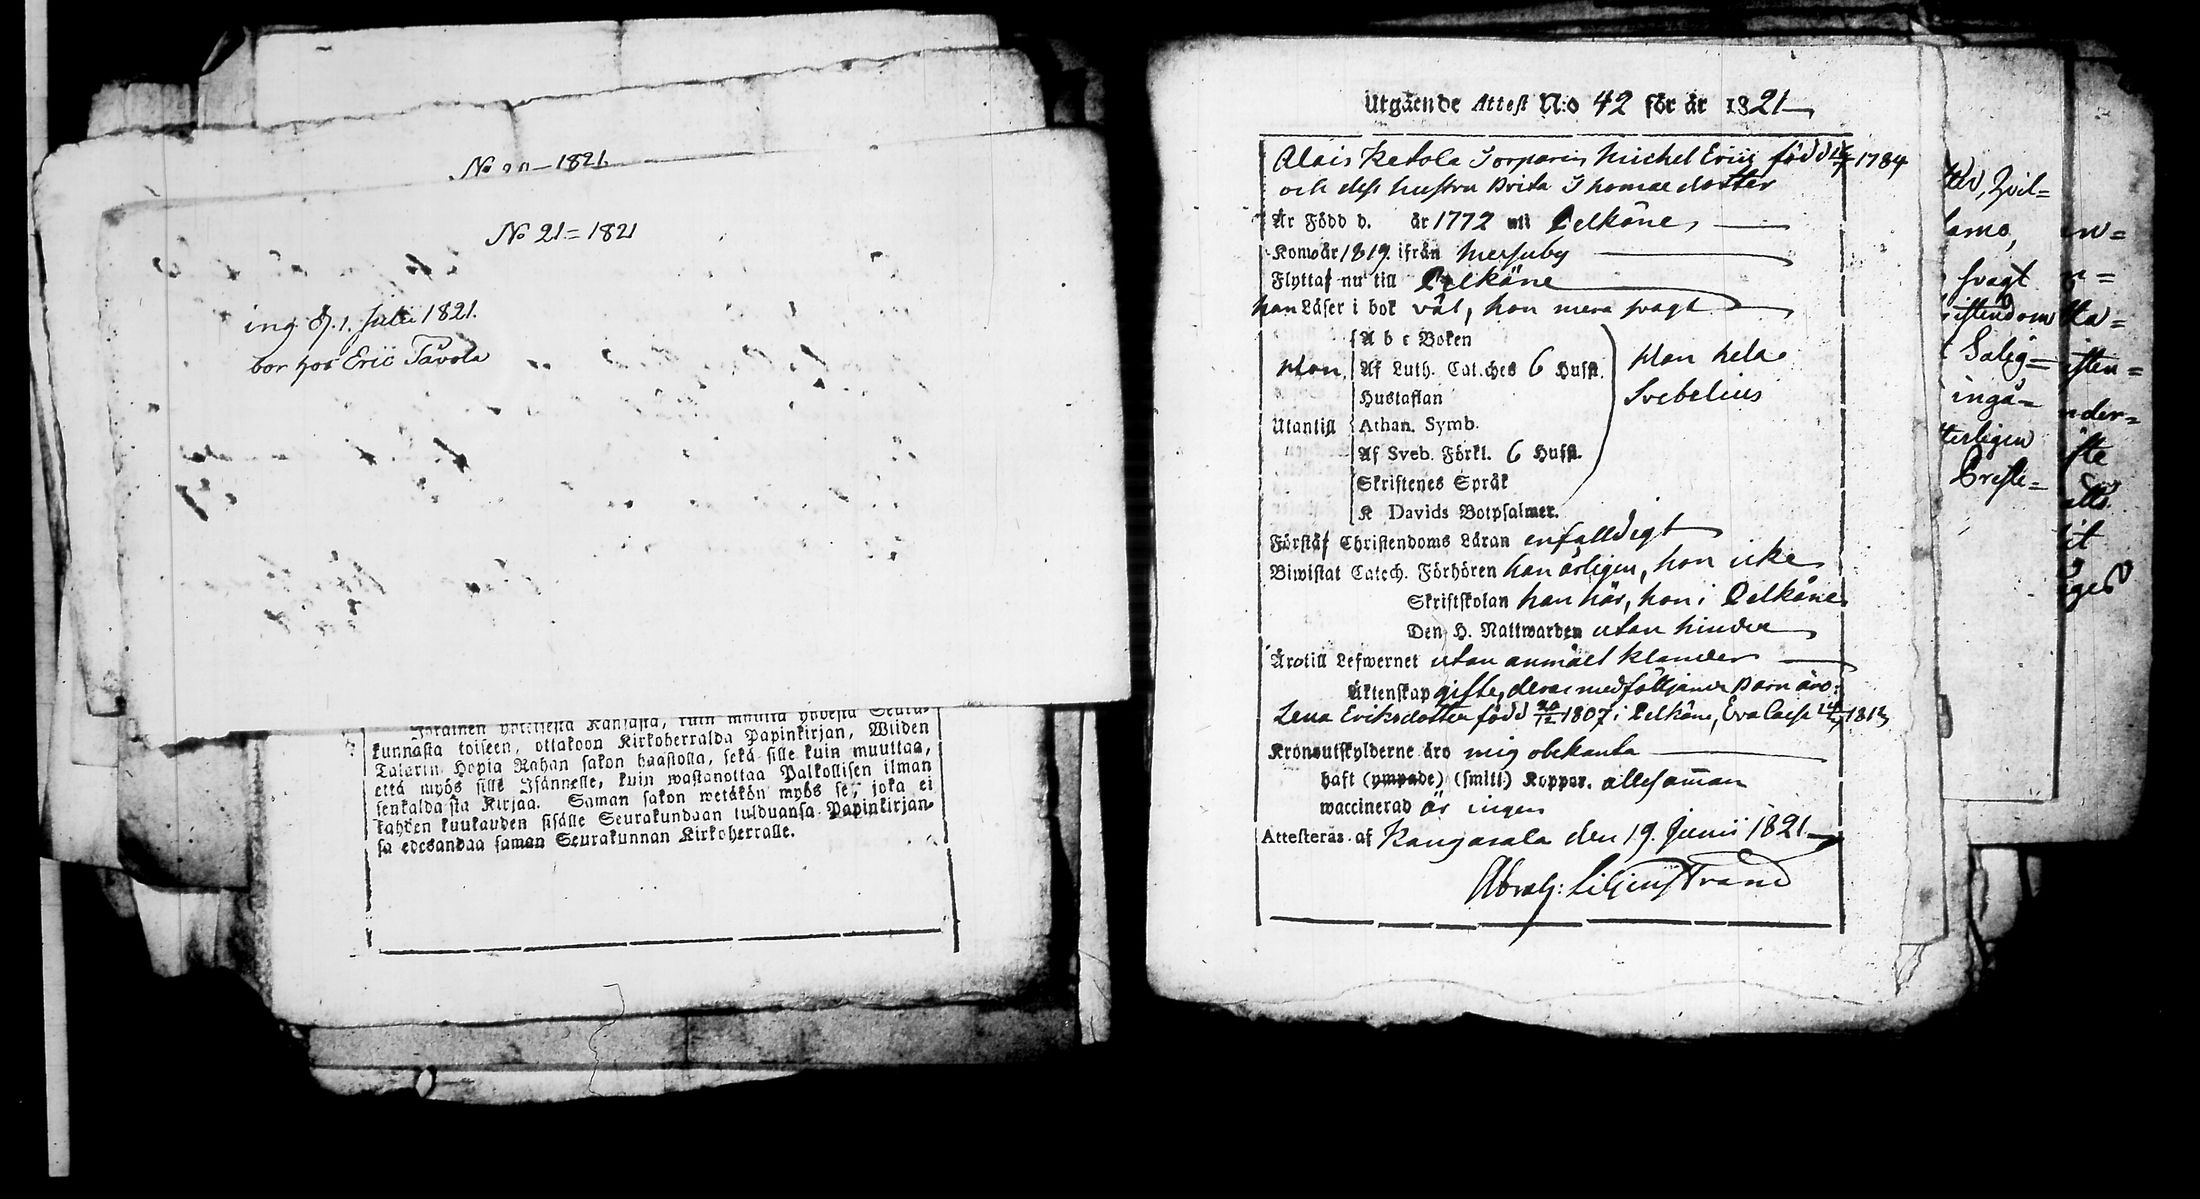 No 20 — 1821.
No 21 = 1821
ing d. 1. Julii 1821.
bor hos Eric Tavola
kunnasta toiseen, ottakoon Kirkoherralda Papinkirjan, Wiiden
Talarin Hopia Rahan sakon haastolla, sekä sille kuin muuttaa,
että myös sille Isännelle, kuin wastanottaa Palkollisen ilman
senkaldaista Kirjaa. Saman sakon wetäkön myös se, joka ei
kahden kuukauden sisälle Seurakundaan tulduansa Papinkirjan-
sa edesandaa saman Seurakunnan Kirkoherralle.
Utgående Attest N:o 42 för år 1821
Alais Ketola Torparen Michel Eric född 1784
och dess hustru Brita Thomae dotter
Är Född d. år 1772 uti Pelkäne
Kom år 1819. ifrån Mersuby
Flyttaf nu till Pelkäne
han Läser i bok väl, hon mera svagt
A b c Boken
Hon Af Luth. Cat.ches 6 Hufst. Han hela
Hustaflan Svebelius
Utantill Athan. Symb.
Af Sveb. Förkl. 6 Hufst.
Skriftenes Språk
K Davids Botpsalmer.
Förstår Christendoms Läran enfalldigt
Biwistat Catech. Förhören han årligen, hon icke
Skriftskolan han här, hon i Pelkäne
Den H. Nattwarden utan hinder
Äro till Lefwernet utan anmält klander
Äktenskap gifte, deras medföljande Barn äro:
Lena Eriksdotter född 20/12 1807 i Pelkäne, Eva Caisa 1813
Kronoutskylderne äro mig obekanta
haft (ympade) (smitt:) Koppor. allesamman
waccinerad är ingen
Attesteras af Kangasala den 19. Junii 1821
Abrah: Liljenstrand
tter, Zvil=
lamo,
svagt
istendom
Salig=
ingå=
terligen
Christe=
en=
n=
tta=
isten=
nder=
fte
alls
it
iges